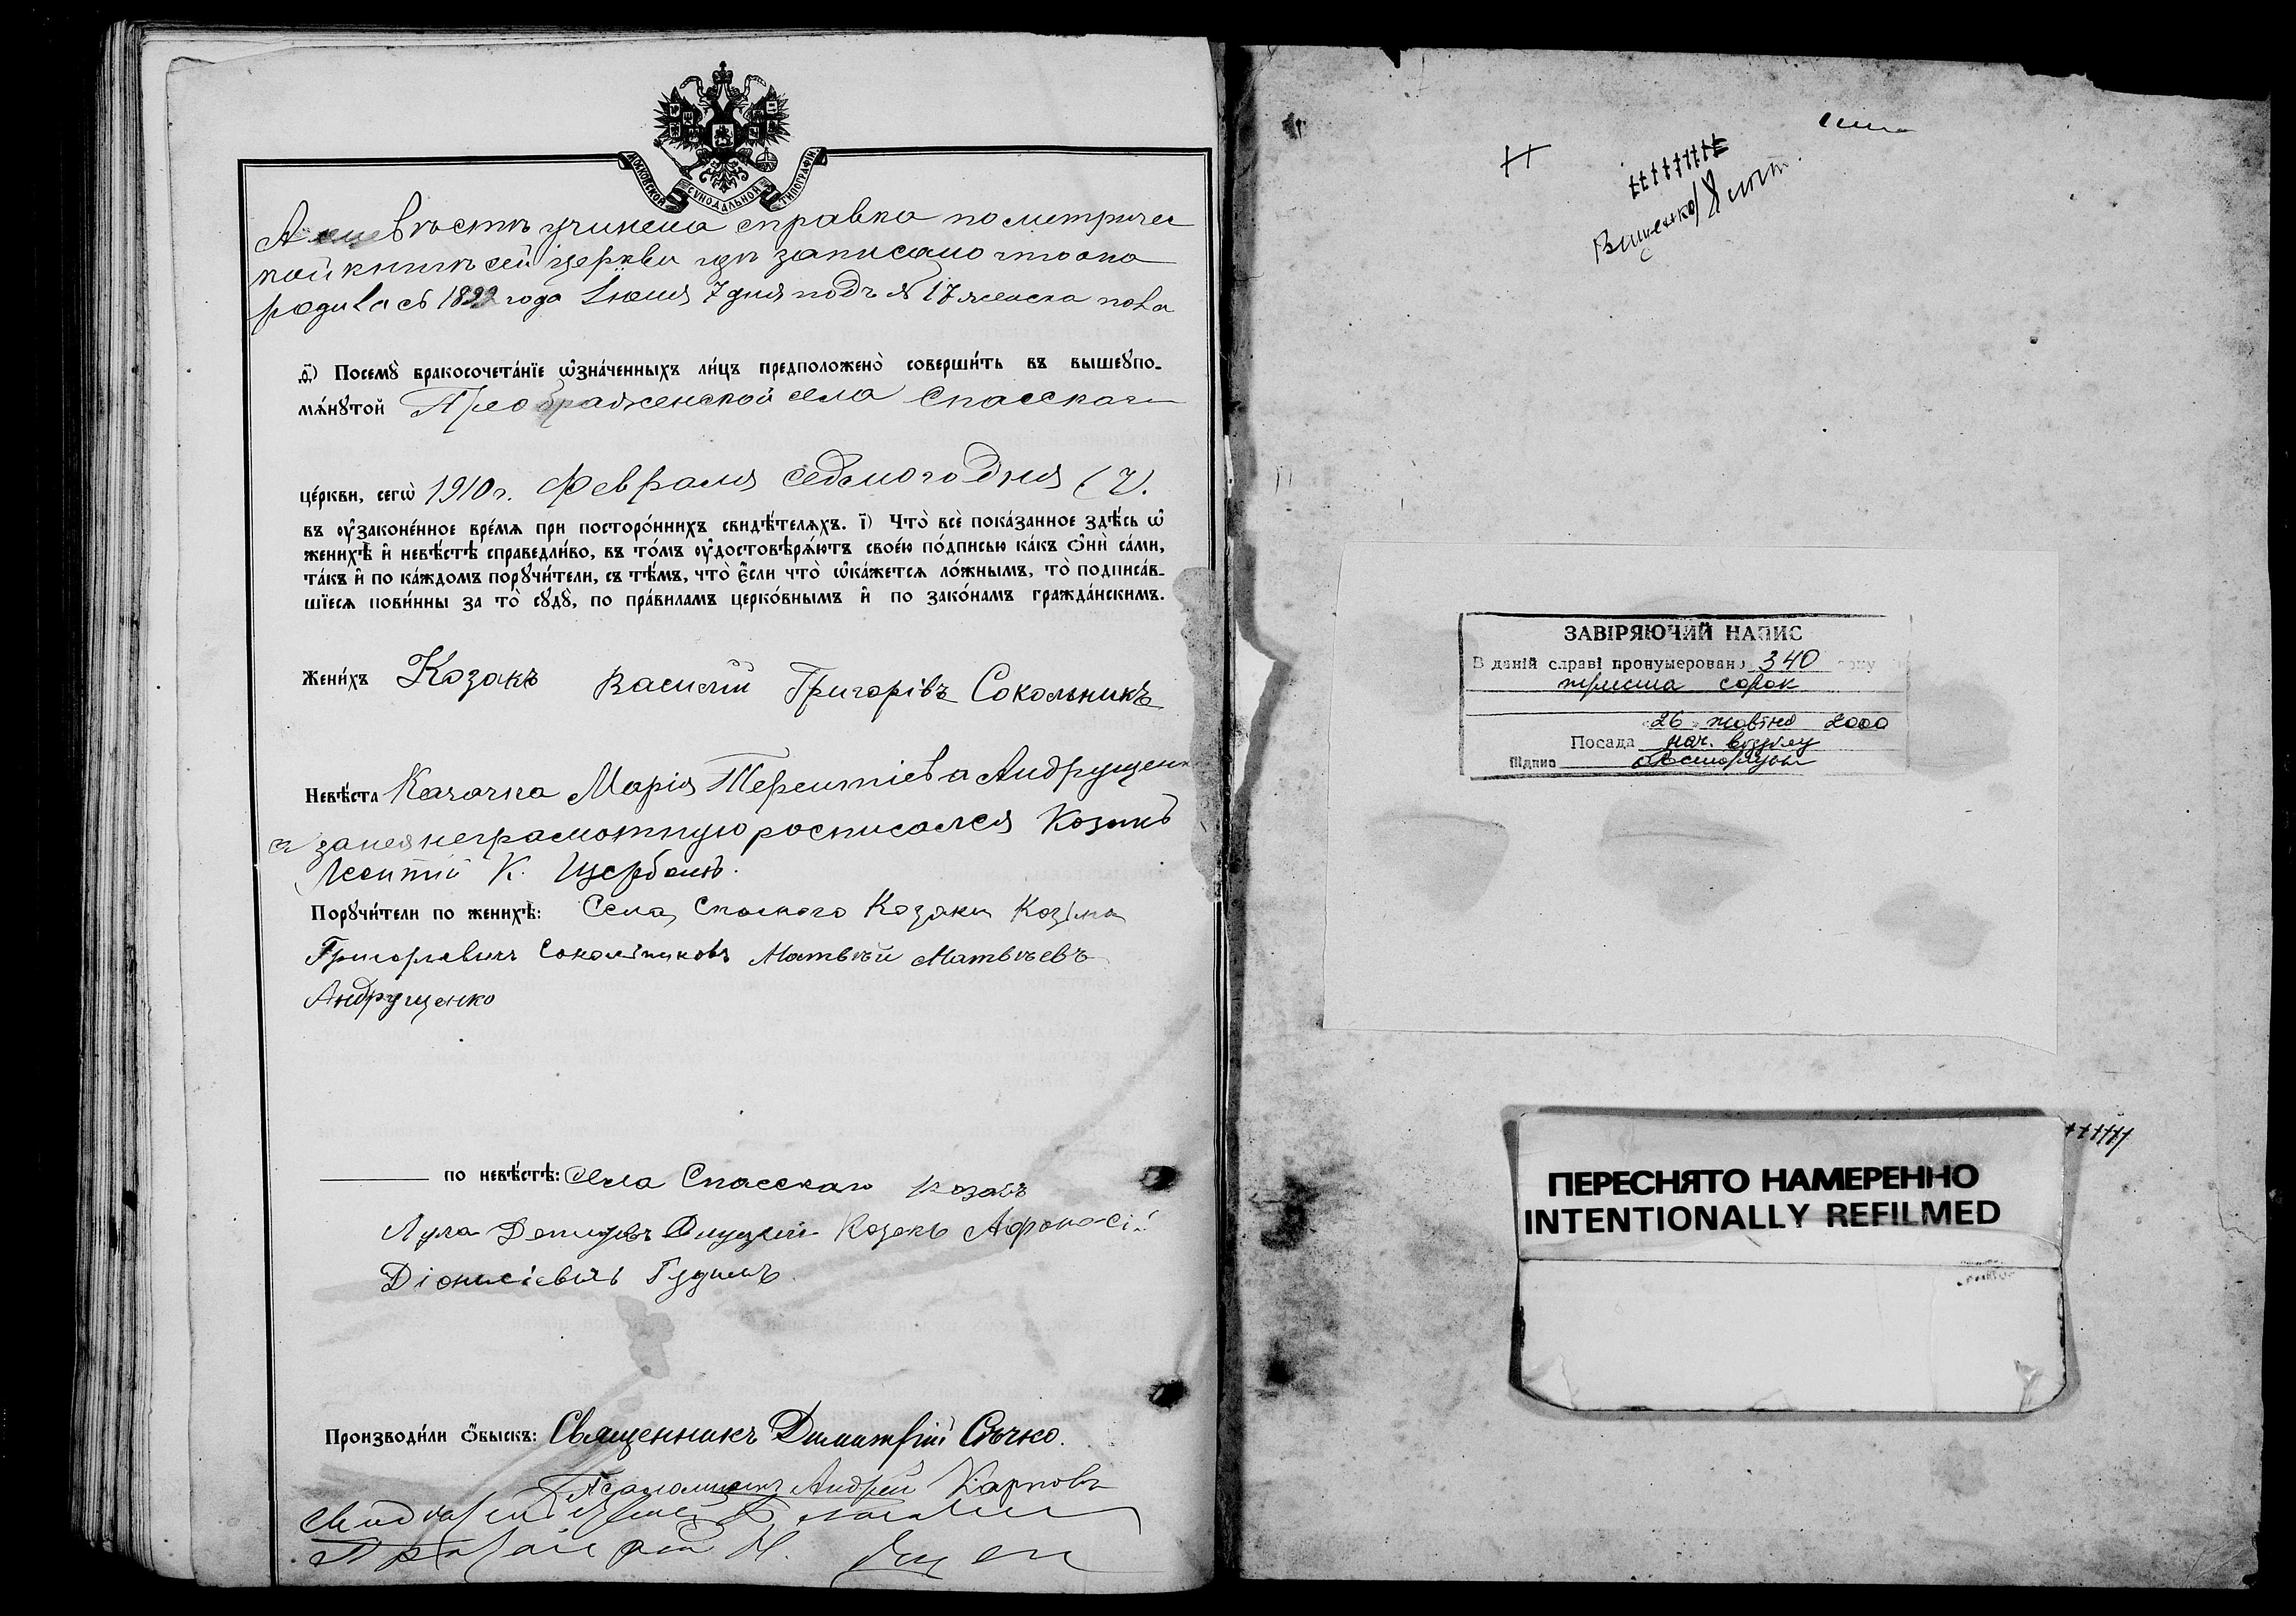 МОСКОВСКОЙ СѴНОДАЛЬНОЙ ТИПОГРАФІИ.
А невѣстѣ учинена справка по метричес
кой книгѣ сей церкви гдѣ записано что она
родилась 1892 года Іюня 7 дня подъ № 17 женска пола
д҃і) Посемꙋ̀ бракосочета́нїе ѡ҆зна́ченныхъ ли́цъ предположено̀ соверши́ть въ вышеꙋпо-
мѧ́нꙋтой Преображенской села Спасскаго
це́ркви, сегѡ̀ 1910 г. Февраля седьмого дня (7).
въ ᲂу҆законе́нное вре́мѧ при посторо́ннихъ свидѣ́телѧхъ. і҃) Что̀ всѐ пока́занное здѣ́сь ѡ҆
женихѣ̀ и҆ невѣ́стѣ справедли́во, въ то́мъ ᲂу҆достовѣрѧ́ютъ свое́ю по́дписью ка́къ ѻ҆нѝ са́ми,
та́къ и҆ по ка́ждомъ порꙋчи́тели, съ тѣ́мъ, что̀ є҆́сли что̀ ѡ҆ка́жется ло́жнымъ, то̀ подписа́в-
шїесѧ пови́нны за то̀ сꙋдꙋ̀, по пра́виламъ церко́внымъ и҆ по зако́намъ гражда́нскимъ.
Жени́хъ Козакъ Василій Григорівъ Сокольникъ
Невѣ́ста Казачка Марія Терентіева Андрущенк
а за нея неграмотную росписался Козакъ
Леонтій К. Щербакъ.
Порꙋчи́тели по женихѣ̀: Села, Спаского Козаки Козіма
Григорьевичъ Соколніковъ Матвѣй Матвѣевъ
Андрущенко
по невѣ́стѣ: Села Спасскаго Козакъ
Лука Козакъ Афонасій
Діонисіевичъ Гудимъ
Производи́ли ѻ҆́быскъ: Священникъ Димитрій Сѣчко.
Псаломщикъ Андрей Карповъ
Вищенко
ЗАВІРЯЮЧИЙ НАПИС
В даній справі пронумеровано 340
триста сорок
26 жовтня 2000
Посада нач. відділу
Підпис
ПЕРЕСНЯТО НАМЕРЕННО
INTENTIONALLY REFILMED